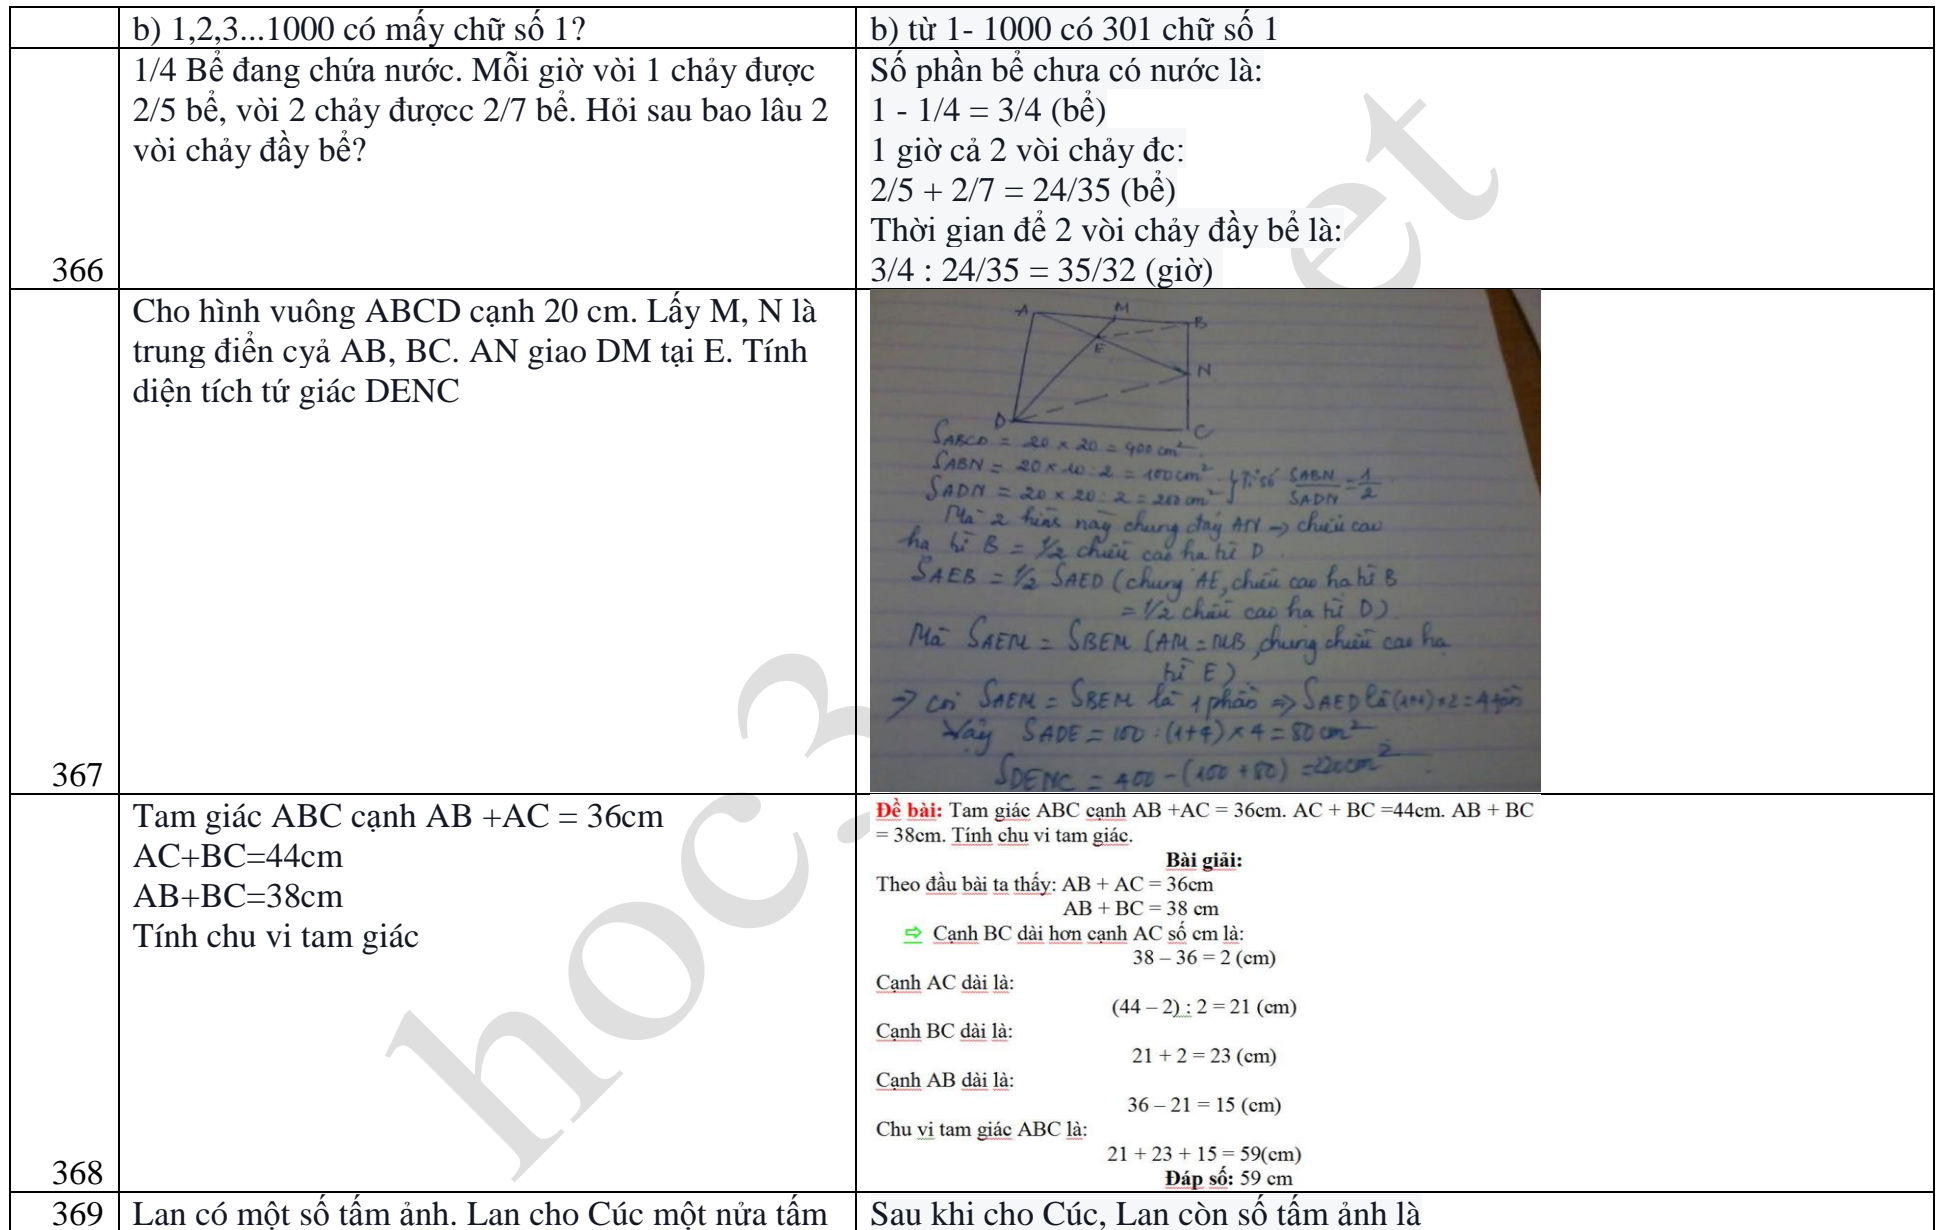 b) 1,2,3...1000 có mấy chữ số 1?
b) từ 1- 1000 có 301 chữ số 1
366
1/4 Bể đang chứa nước. Mỗi giờ vòi 1 chảy được
2/5 bể, vòi 2 chảy đượcc 2/7 bể. Hỏi sau bao lâu 2
vòi chảy đầy bể?
Số phần bể chưa có nước là:
1 - 1/4 = 3/4 (bể)
1 giờ cả 2 vòi chảy đc:
2/5 + 2/7 = 24/35 (bể)
Thời gian để 2 vòi chảy đầy bể là:
3/4 : 24/35 = 35/32 (giờ)
367
Cho hình vuông ABCD cạnh 20 cm. Lấy M, N là
trung điển cyả AB, BC. AN giao DM tại E. Tính
diện tích tứ giác DENC
A M B
E
N
D C
SABCD = 20 x 20 = 400 cm²
SABN = 20 x 10 : 2 = 100 cm² } Tỉ số SABN/SADN = 1/2
SADN = 20 x 20 : 2 = 200 cm²
Mà 2 hình này chung đáy AN → chiều cao
hạ từ B = 1/2 chiều cao hạ từ D.
SAEB = 1/2 SAED (chung AE, chiều cao hạ từ B
= 1/2 chiều cao hạ từ D)
Mà SAEM = SBEM (AM = MB, chung chiều cao hạ
từ E)
→ coi SAEM = SBEM là 1 phần ⇒ SAED là (1+1)x2 = 4 phần
Vậy SADE = 100 : (1+4) x 4 = 80 cm²
SDENC = 400 - (100 + 80) = 220 cm²
368
Tam giác ABC cạnh AB +AC = 36cm
AC+BC=44cm
AB+BC=38cm
Tính chu vi tam giác
Đề bài: Tam giác ABC cạnh AB +AC = 36cm. AC + BC =44cm. AB + BC
= 38cm. Tính chu vi tam giác.
Bài giải:
Theo đầu bài ta thấy: AB + AC = 36cm
AB + BC = 38 cm
⇨ Cạnh BC dài hơn cạnh AC số cm là:
38 – 36 = 2 (cm)
Cạnh AC dài là:
(44 – 2) : 2 = 21 (cm)
Cạnh BC dài là:
21 + 2 = 23 (cm)
Cạnh AB dài là:
36 – 21 = 15 (cm)
Chu vi tam giác ABC là:
21 + 23 + 15 = 59(cm)
Đáp số: 59 cm
369
Lan có một số tấm ảnh. Lan cho Cúc một nửa tấm
Sau khi cho Cúc, Lan còn số tấm ảnh là